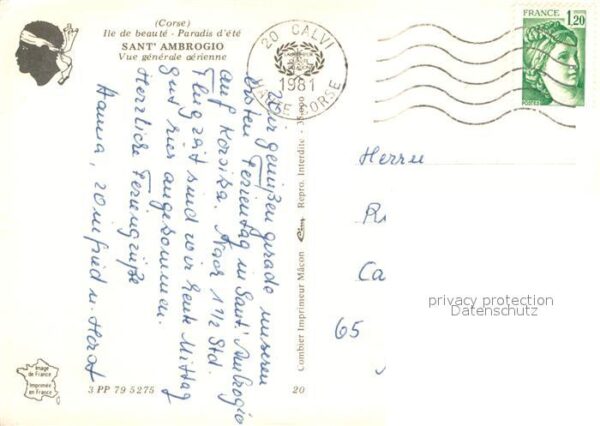 (Corse)
Ile de beauté - Paradis d'été
SANT' AMBROGIO
Vue générale aérienne
20 CALVI
1981
HAUTE CORSE
FRANCE
1,20
POSTES
Wir genießen gerade unseren
ersten Ferientag in Sant' Ambrogio
auf Korsika. Nach 1 1/2 Std.
Flugzeit sind wir heute Mittag
gut hier angekommen.
Herrliche Feriengrüße
Hanna, Winfried u. Horst
Combier Imprimeur Mâcon Cim Repro. Interdite -
Herrn
Ca
65
privacy protection
Datenschutz
Image
de France
Imprimée
en France
3 PP 79 5275
20